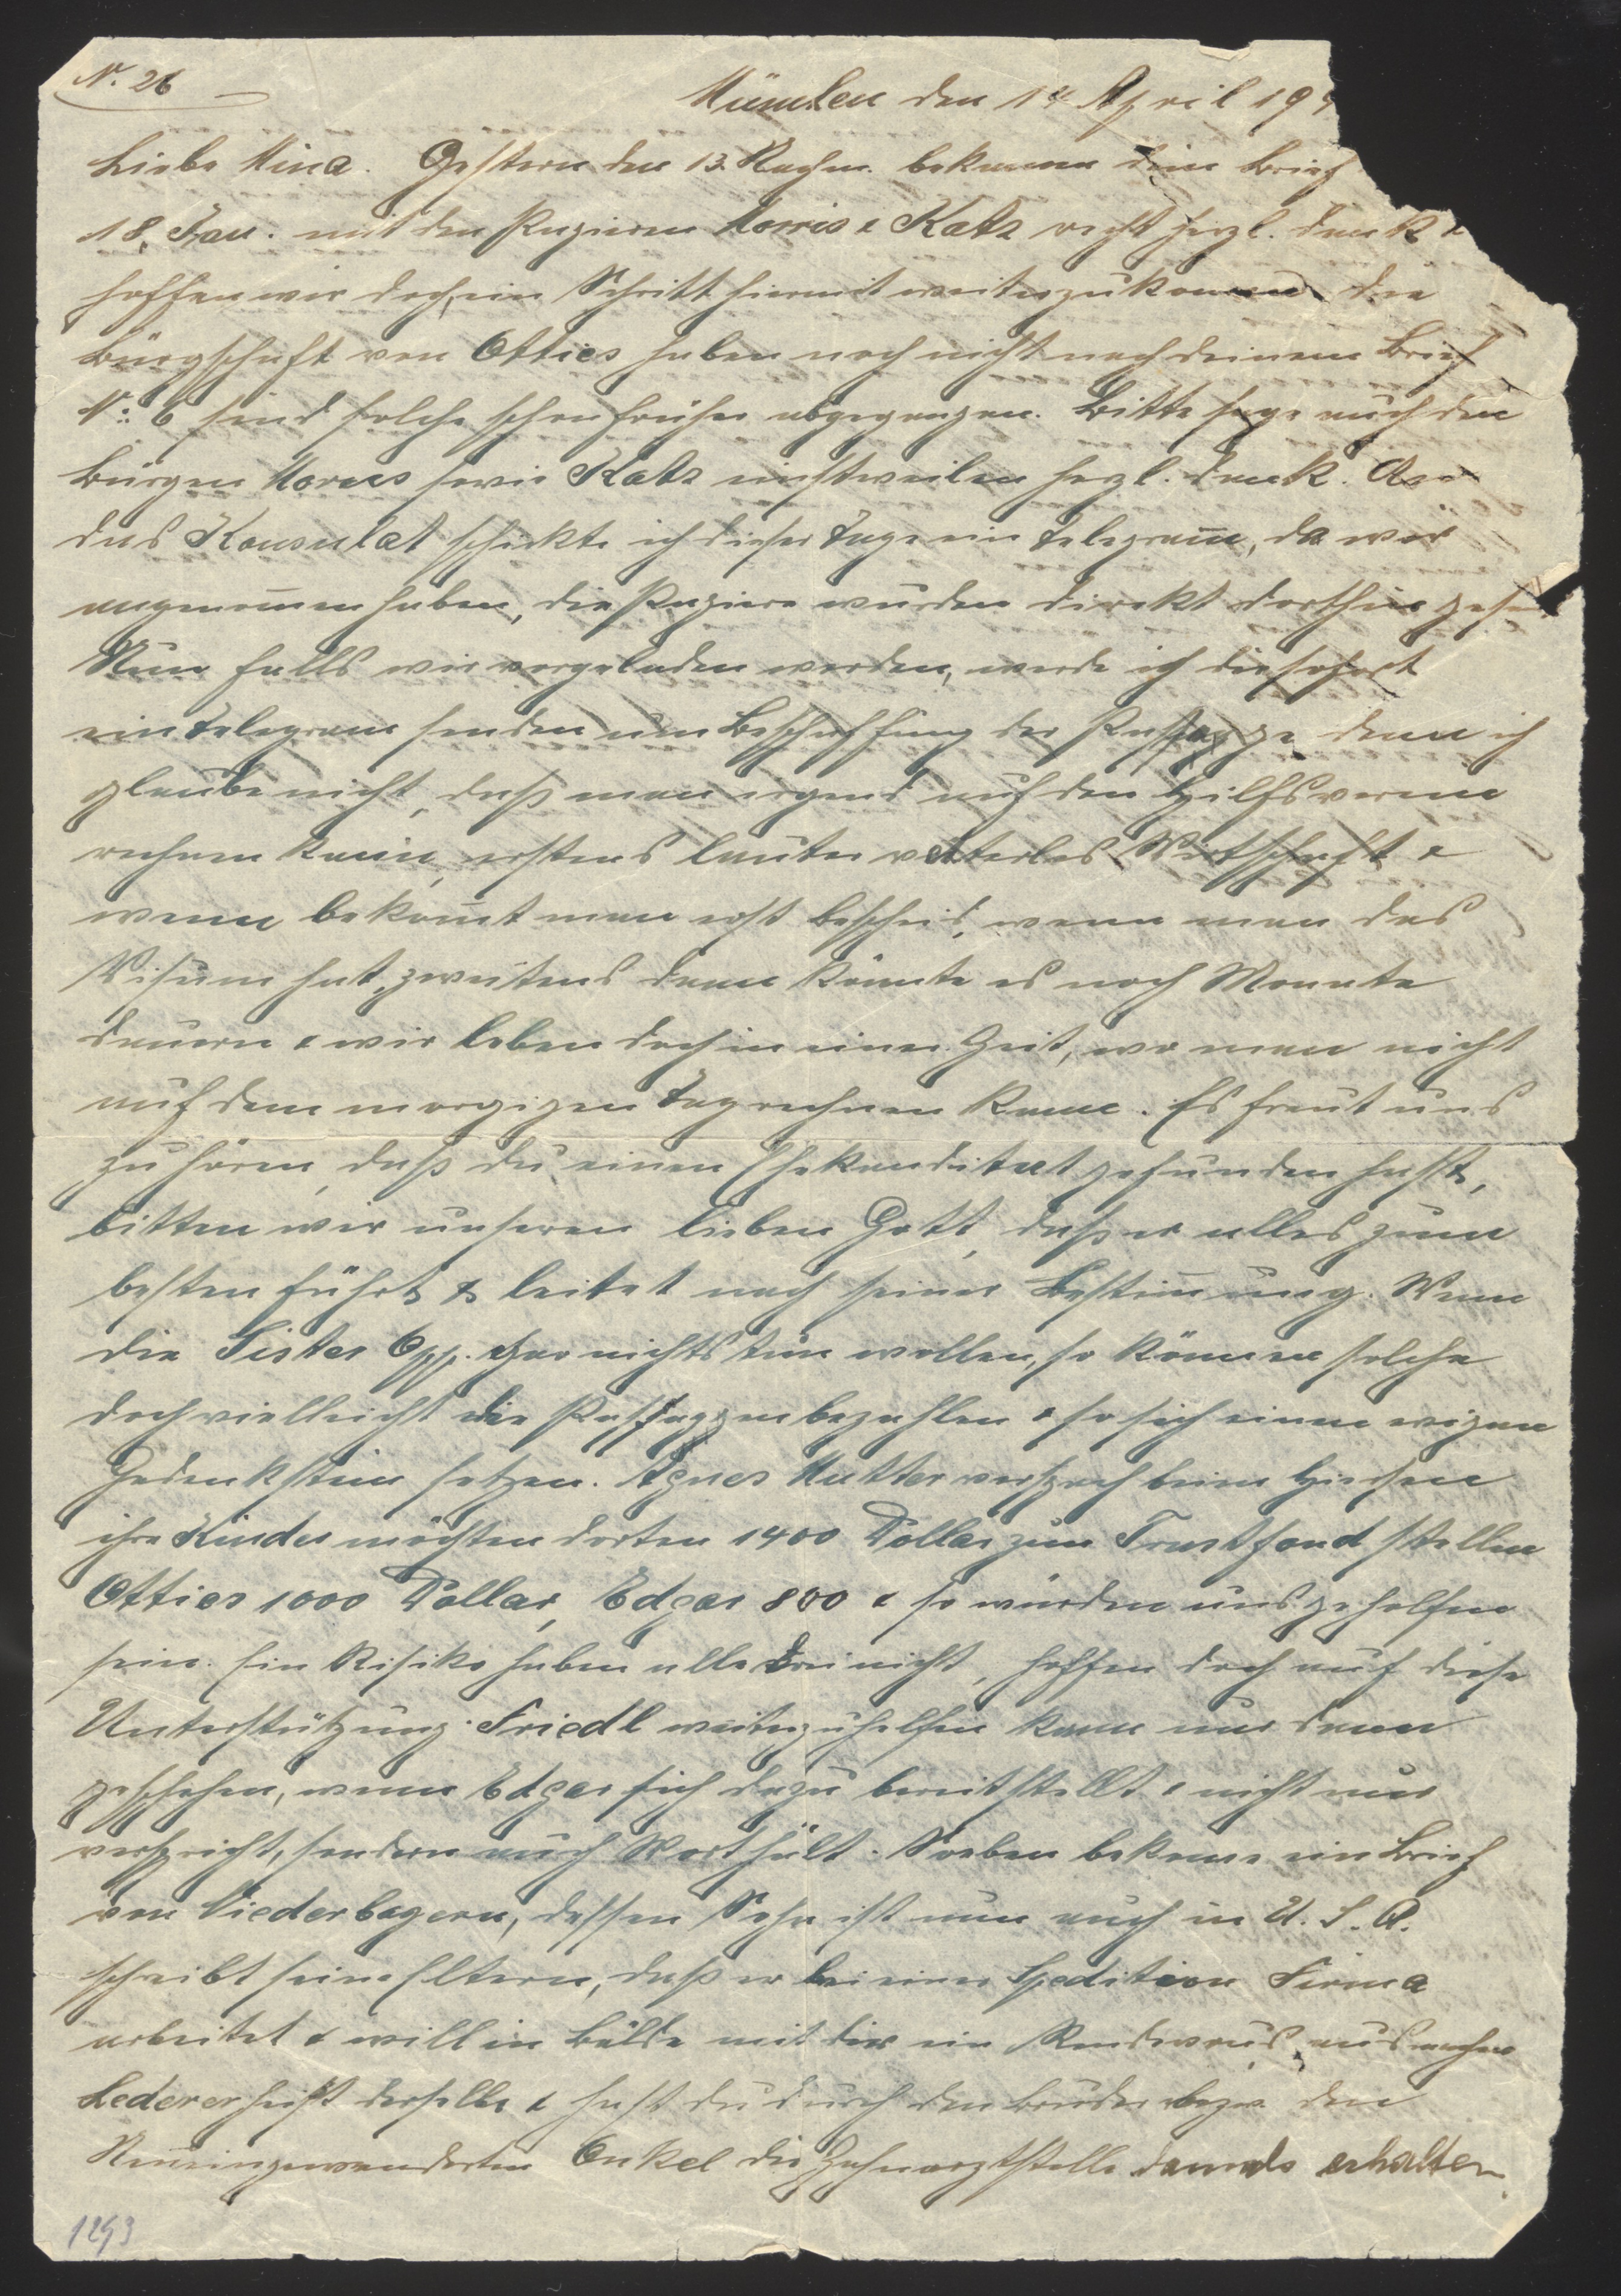 N. 26
München den 14 April 19
Liebe Mina. Gestern den 13. Nachm. bekamen dein Brief
18. Jan. mit den Papieren Morris & Katz recht herzl. Dank &
hoffen wir doch, ein Schritt hiermit weiterzukommen die
Bürgschaft von Otties haben noch nicht nach deinem Brief
N: 6 sind solche schon früher abgegangen. Bitte sage auch den
Bürgen Morris sowie Katz einstweilen herzl. Dank. An
das Konsulat schickte ich dieser Tage ein Telegram̅, da wir
angenom̅en haben, die Papiere wurden direkt dorthin
Nun falls wir vorgeladen werden, werde ich dir sofort
ein Telegram senden um Beschaffung der Passage denn ich
glaube nicht, daß man irgend auf den Hilfsverein
rechnen kann, erstens lauter Wirtschaft &
wenn bekom̅t man erst bescheid, wenn man das
Visum hat, zweitens dann könnte es noch Monate
dauern & wir leben doch in einer Zeit, wo man nicht
auf dem morgigen Tag rechnen kann. Es freut uns
zu hören, daß du einen Ehekanditat gefunden hast,
bitten wir unseren lieben Gott, daß er alles zum
besten führt & leitet nach seiner Bestim̅ung. Wenn
die Sister Opp. gar nichts tun wollen, so können solche
doch vielleicht die Passagen bezahlen & so sich einen ewigen
Gedenkstein setzen. Agnes Mutter versprach beim Hiersein
ihre Kinder möchten dorten 1400 Dollar zum Trustfond stellen
Otties 1000 Dollar, Edgar 800 & so würden uns geholfen
sein. Ein Risiko haben alle drei nicht, hoffen doch auf diese
Unterstützung. Friedl weiterzuhelfen kann nur dann
geschehen, wenn Edgar sich dazu bereitstellt & nicht nur
verspricht, sondern auch Wort hält. Soeben bekomme ein Brief
von Niederbayern, dessen Sohn ist nun auch in U. S. A.
schreibt seine Eltern, daß er bei einer Spedition Firma
arbeitet & will in Bälde mit dir ein Rendevous ausmachen
Lederer heißt derselbe & hast du durch den Bruder bezw. den
Neueingewanderten Onkel die Zahnarztstelle damals erhalten.
1293